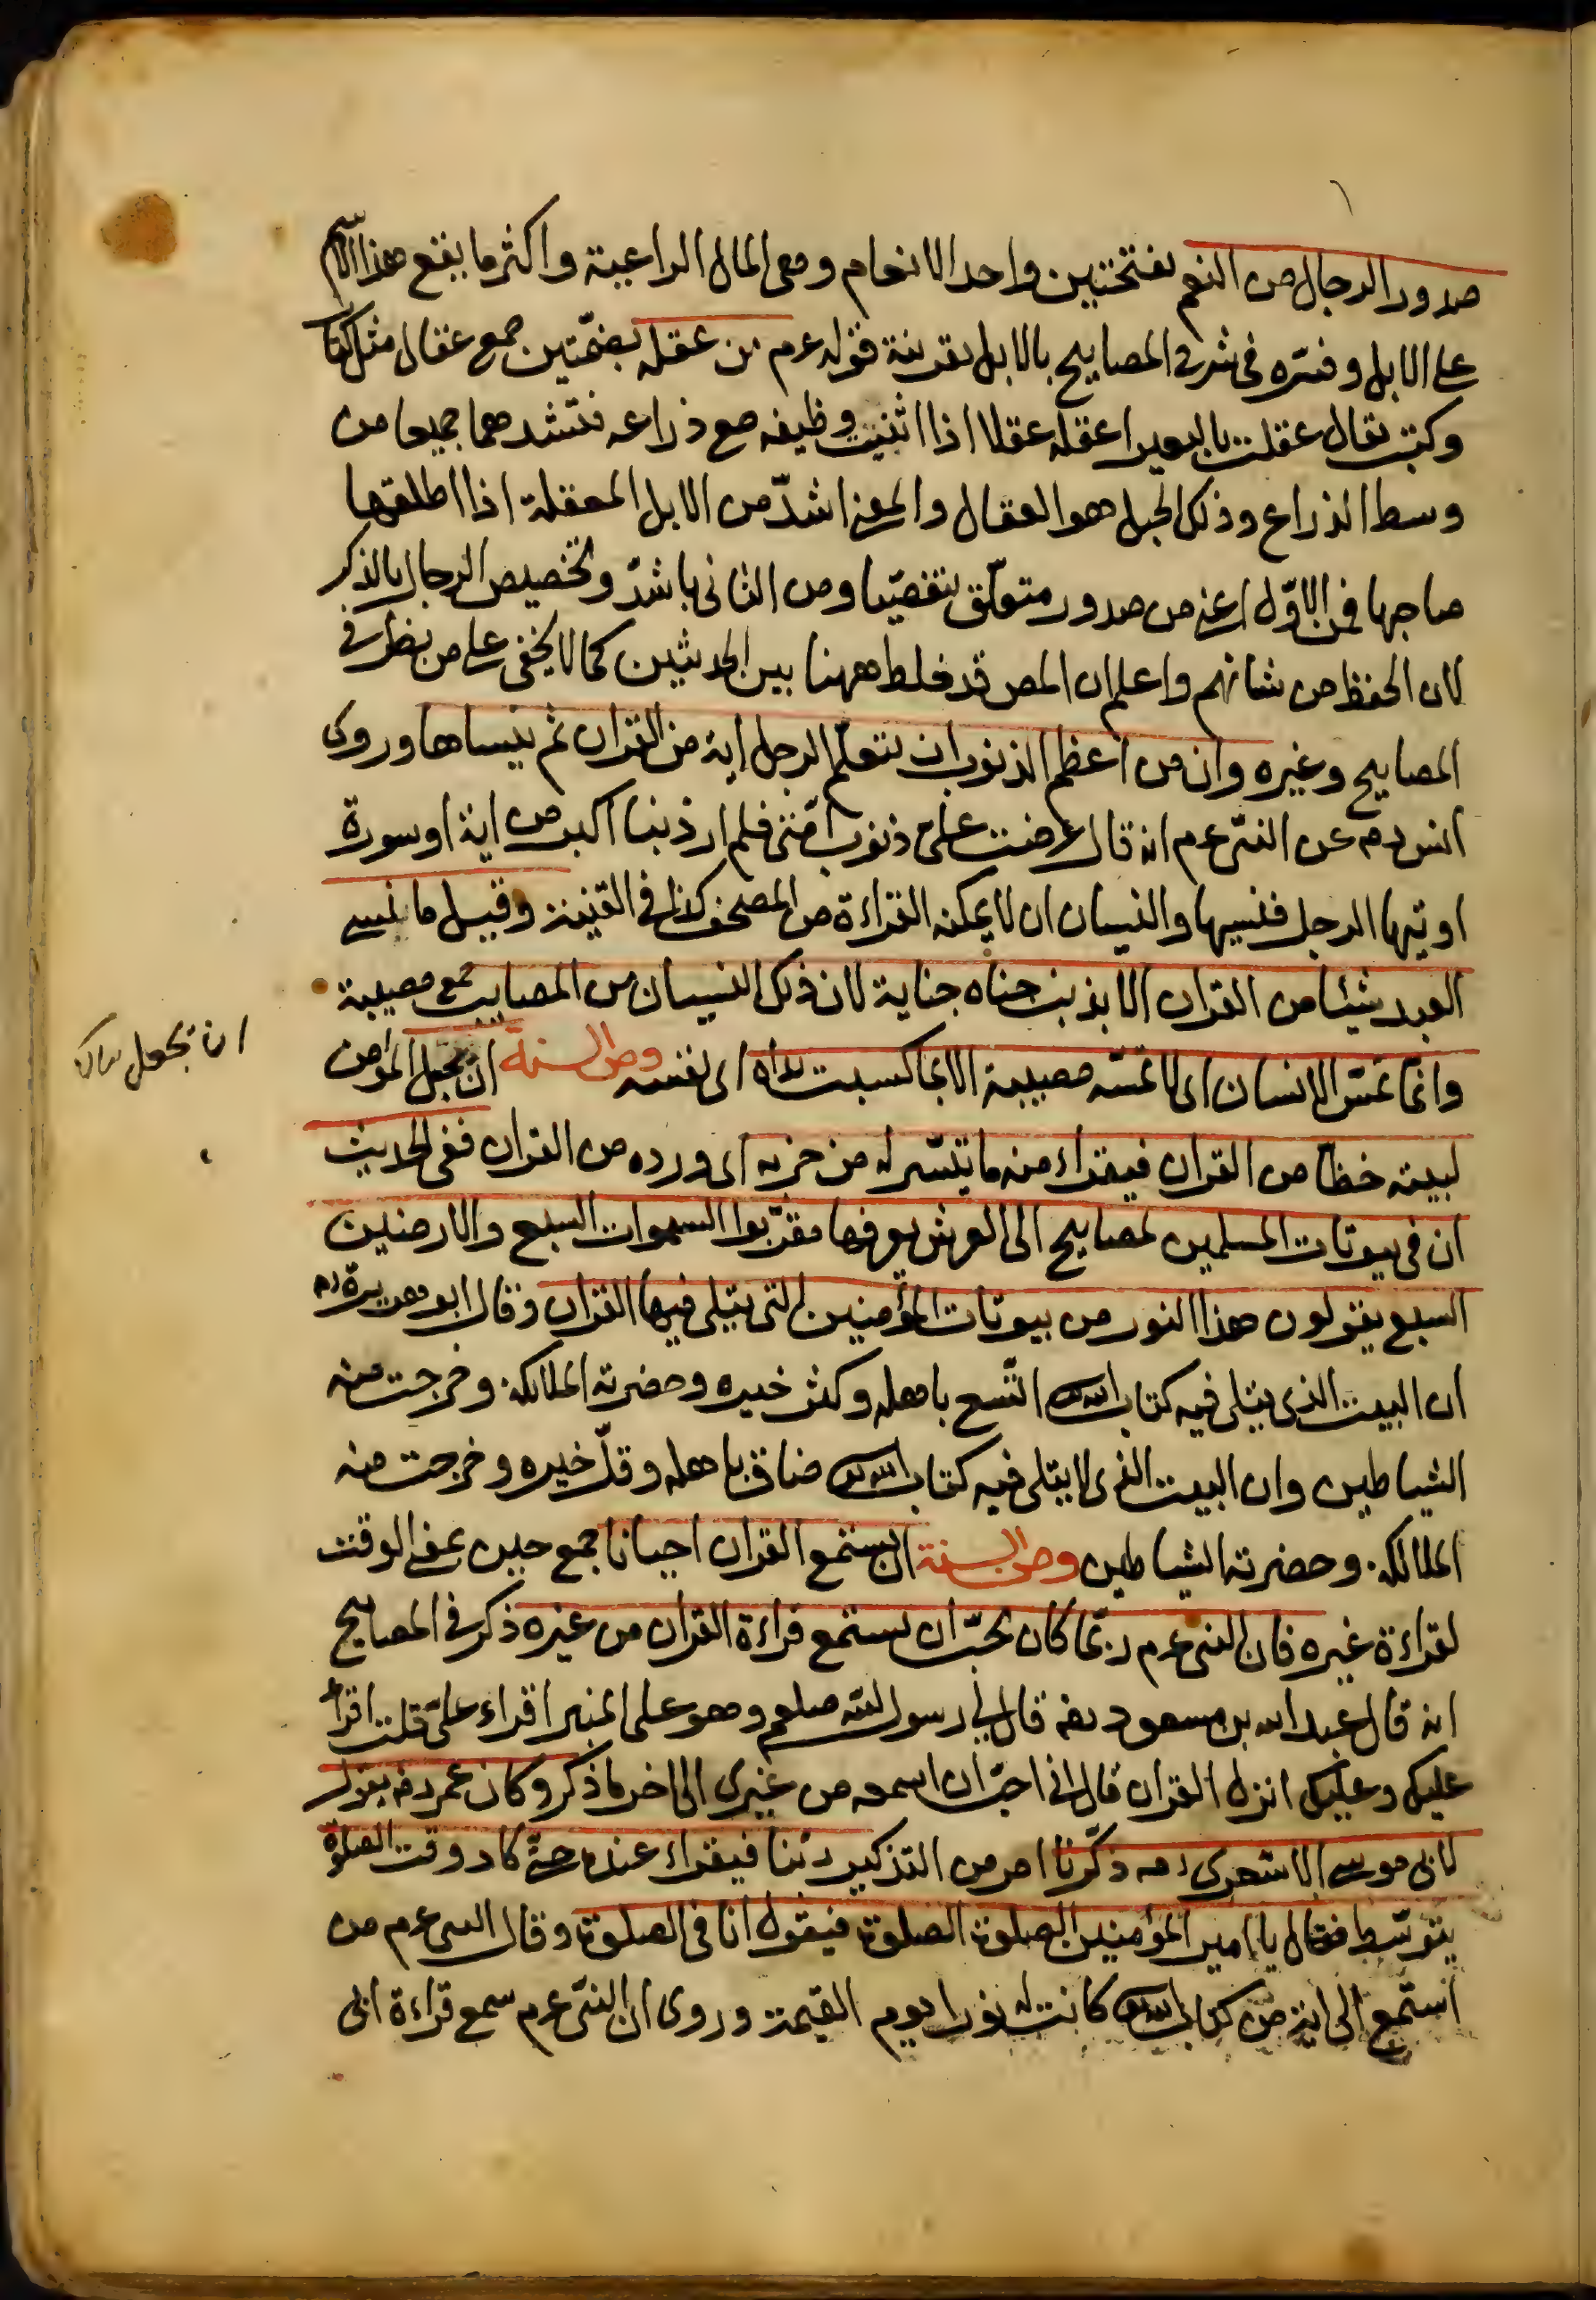 صدور الرجال من النعم بفتحتين واحد الانعام وهى المال الراعية واكثر ما يقع هذا الاسم
على الابل وفسّره فى شرح المصابيح بالابل بقرينة قوله عم من عقله بضمّتين جمع عقال مثل كتاب
وكتب يقال عقلت بالبعير اعقله عقلا اذا اثنيت وظيفه مع ذراعه فتشدهما جميعا من
وسط الذراع وذلك الحبل هو العقال والمعنى اشدّ من الابل المعقلة اذا اطلقها
صاحبها فمن الاوّل اعنى من صدور متعلّق بتفصّيا ومن الثانى باشدّ وتخصيص الرجال بالذكر
لان الحفظ من شانهم واعلم ان المص قد خلط ههنا بين الحديثين كما لا يخفى على من نظر فى
المصابيح وغيره وان من اعظم الذنوب ان يتعلّم الرجل اية من القران ثم ينساها وروى
انس رم عن النبىّ عم انه قال عرضت علىّ ذنوب امّتى فلم ار ذنبا اكبر من اية او سورة
اوتيها الرجل فنسيها والنسيان ان لا يمكنه القراءة من المصحف كذا فى القنية وقيل ما نسى
العبد شيئا من القران الا بذنب جناه جناية لان ذلك النسيان من المصايب جمع مصيبة
وانّما تمسّ الانسان اى لا تمسّه مصيبة الا بما كسبت يداه اى نفسه ومن السنة ان يجعل المؤمن
ان يجعل
لبيته حظّا من القران فيقراء منه ما يتسّر له من حزبه اى ورده من القران ففى الحديث
ان فى بيوتات المسلمين لمصابيح الى العرش يعرفها مقرّبوا السموات السبع والارضين
السبع يقولون هذا النور من بيوتات المؤمنين التى يتلى فيها القران وقال ابو هريرة رم
ان البيت الذى يتلى فيه كتاب الله اتّسع باهله وكثر خيره وحضرته الملائكة وخرجت منه
الشياطين وان البيت الذى لا يتلى فيه كتاب الله ضاق باهله وقلّ خيره وخرجت منه
الملائكة وحضرته الشياطين ومن السنة ان يستمع القران احيانا جمع حين بمعنى الوقت
لقراءة غيره فان النبى عم ربّما كان يحبّ ان يستمع قراءة القران من غيره ذكر فى المصابيح
انه قال عبد الله بن مسعود رضه قال لى رسول الله صلعم وهو على المنبر اقراء علىّ قلت اقرأ
عليك وعليك انزل القران قال انى احبّ ان اسمعه من غيرى الى اخر ما ذكر وكان عمر رضه يقول
لابى موسى الاشعرى رضه ذكّرنا امر من التذكير ربّنا فيقراء عنده حتّى كاد وقت الصلوة
يتوسّط فقال يا امير المؤمنين الصلوة الصلوة فيقول انا فى الصلوة وقال النبى عم من
استمع الى اية من كتاب الله كانت له نورا يوم القيمة وروى ان النبىّ عم سمع قراءة ابى